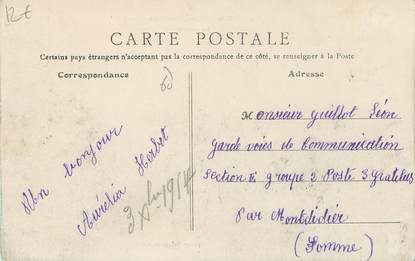 12€
CARTE POSTALE
Certains pays étrangers n'acceptant pas la correspondance de ce côté, se renseigner à la Poste
Correspondance
Adresse
Un bonjour
Aurélia Herbet
3 Xbre 1914
Monsieur Guillot Léon
garde voies de Communication
Section groupe 2 Poste 3
Par Montdidier
(Somme)